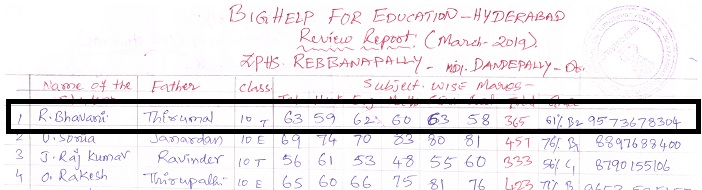 BIGHELP FOR EDUCATION - HYDERABAD
Review Report: (March-2019).
ZPHS. REBBANAPALLY - Mdl. DANDEPALLY -
Name of the Father class Subject. WISE Marks -
1 R. Bhavani Thirumal 10 T 63 59 62 60 63 58 365 61% B2 9573678304
2 Sonia Janardan 10 E 69 74 70 83 80 81 457 76% B1 8897688400
3 J. Raj Kumar Ravinder 10 T 56 61 53 48 55 60 333 56% C1 8790155106
4 O. Rakesh Thirupathi 10 E 65 60 66 75 81 76 423 71% B1